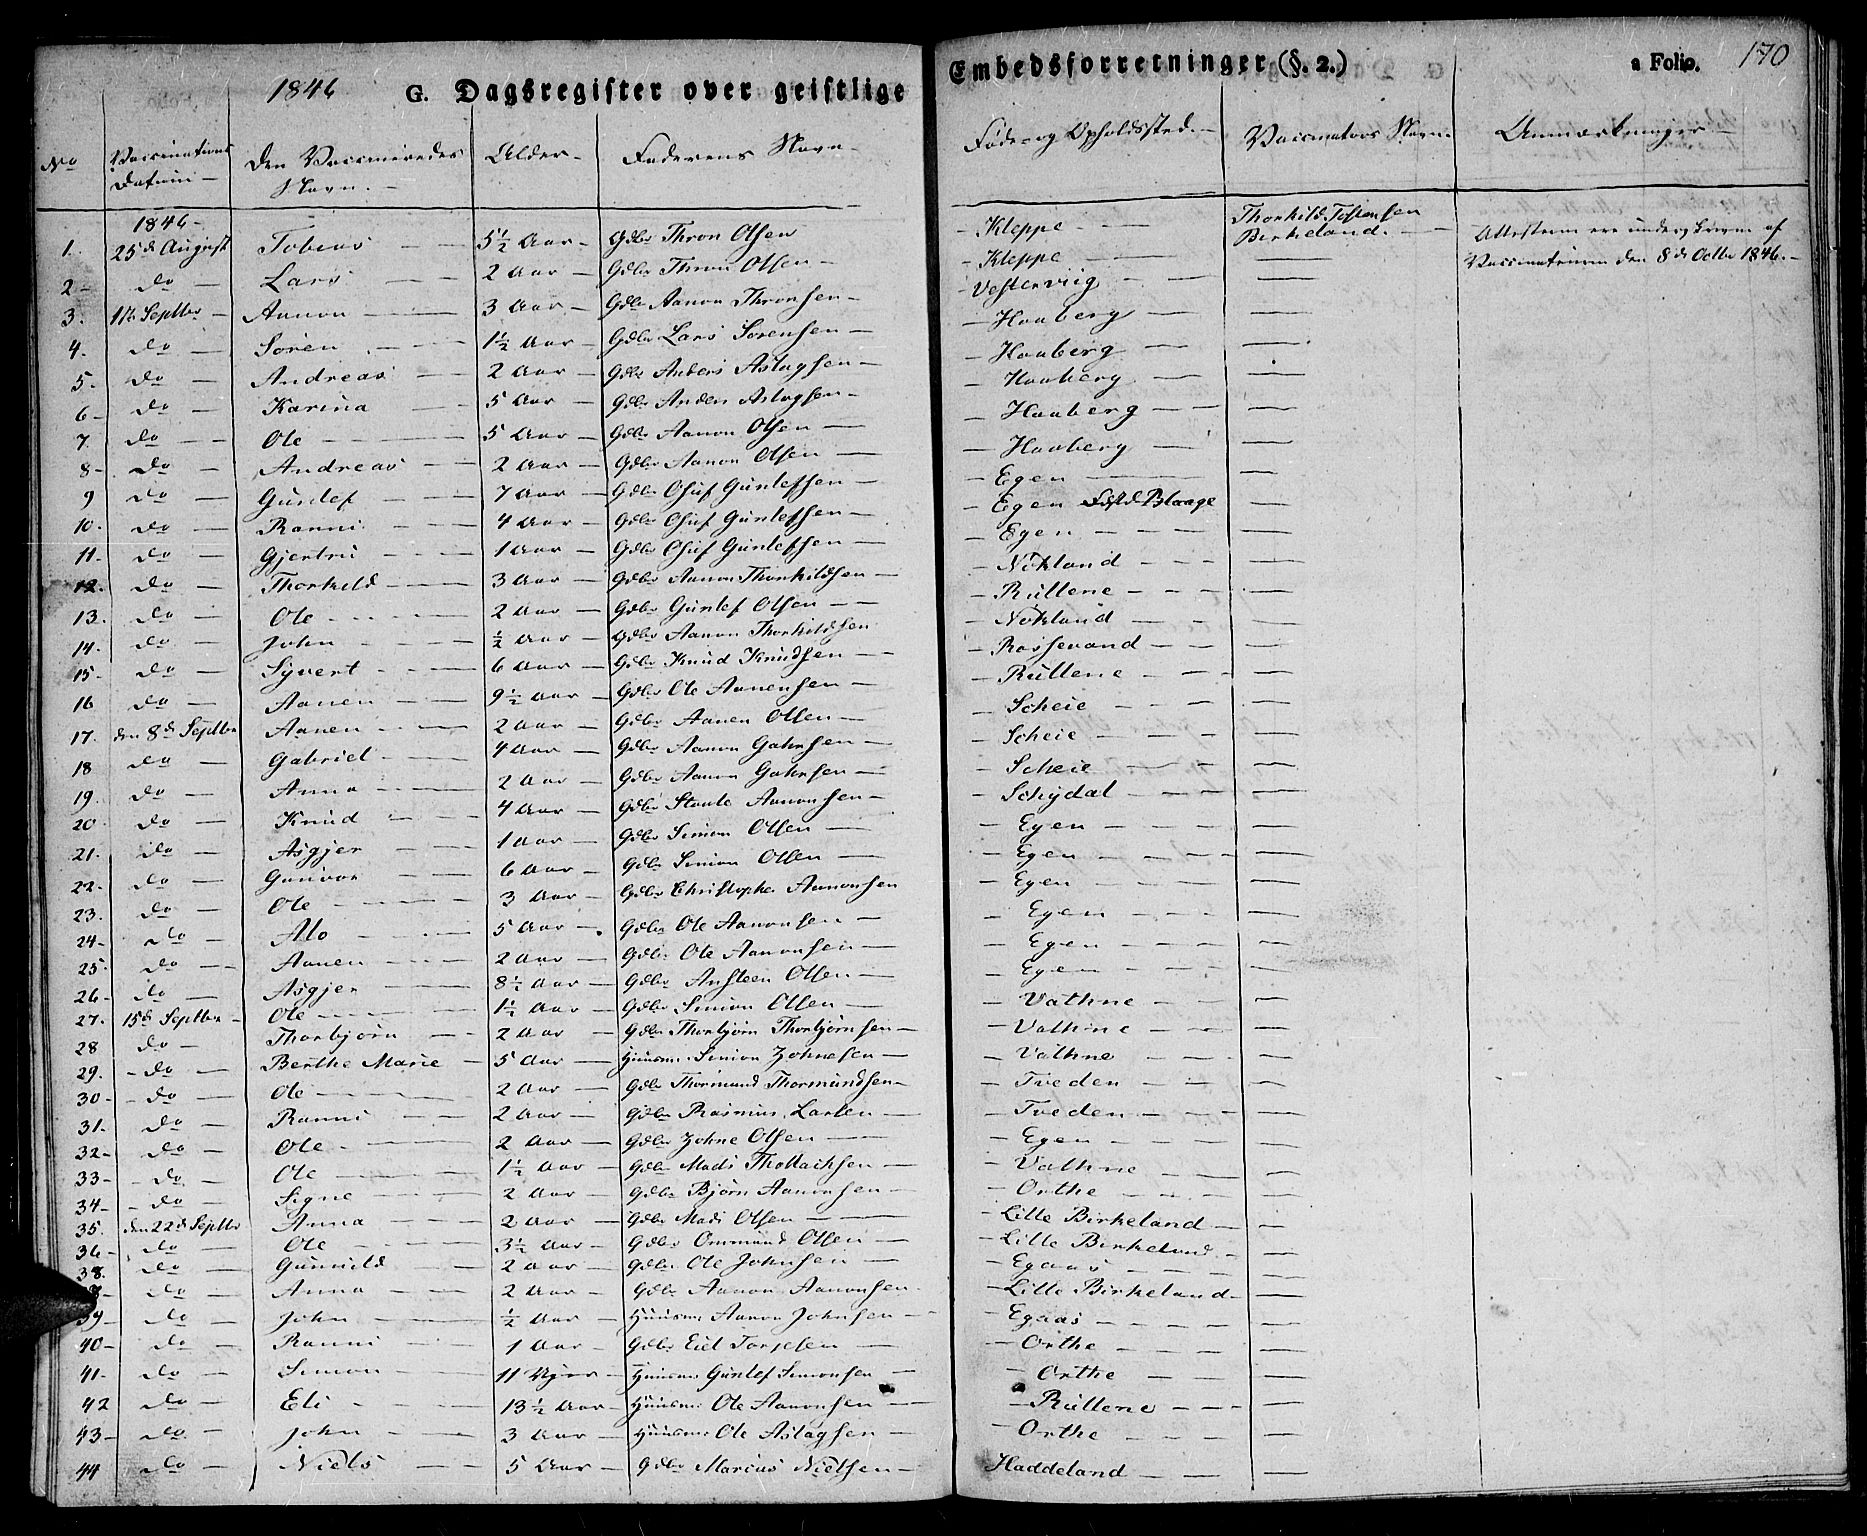 1846 G. Dagsregister over geistlige Embedsforretninger (§. 2.) a Folio. 170
No Vaccinations Datum Den Vaccineredes Navn. Alder Faderens Navn Føde og Opholdssted. Vaccinators Navn Anmærkninger
1846
1. 25de August Tobias 5½ Aar Gdbr Thron Olsen Kleppe Thorkild Tostensen Birkeland. Attesterne ere underskrevne af
2 do Lars 2 Aar Gdbr Thron Olsen Kleppe Vaccinatricen den 8de Octbr 1846.
3. 1te Septbr Aanon 3 Aar Gdbr Aanon Thronsen Vesterviig
4. do Søren 1½ Aar Gdbr Lars Sørensen Haaberg
5. do Andreas 2 Aar Gdbr Anders Aslagsen Haaberg
6 do Karina 5 Aar Gdbr Anders Aslagsen Haaberg
7. do Ole 5 Aar Gdbr Aanon Olsen Haaberg
8 do Andreas 2 Aar Gdbr Aanon Olsen Haaberg
9 do Gunlef 7 Aar Gdbr Osuf Gunlefsen Egen
10. do Ranni 4 Aar Gdbr Osuf Gunlefsen Egen Fdstd Blaage
11. do Gjertru 1 Aar Gdbr Osuf Gunlefsen Egen
12. do Thorkild 3 Aar Gdbr Aanon Thorkildsen Nokland
13. do Ole 2 Aar Gdbr Gunlef Olsen Rullene
14. do John ½ Aar Gdbr Aanon Thorkildsen Nokland
15. do Syvert 6 Aar Gdbr Knud Knudsen Rossevand
16 do Aanen 9½ Aar Gdbr Ole Aanensen Rullene
17. den 8de Septbr Aanen 2 Aar Gdbr Aanen Olsen Scheie
18 do Gabriel 4 Aar Gdbr Aanon Gahrsen Scheie
19. do Anna 2 Aar Gdbr Aanon Gahrsen Scheie
20 do Knud 4 Aar Gdbr Staale Aanonsen Schydal
21. do Asgjer 1 Aar Gdbr Simon Olsen Egen
22. do Gunvor 6 Aar Gdbr Simon Olsen Egen
23. do Ole 3 Aar Gdbr Christopher Aanonsen Egen
24 do Alo 5 Aar Gdbr Ole Aanonsen Egen
25. do Aanen 2 Aar Gdbr Ole Aanonsen Egen
26 do Asgjer 8½ Aar Gdbr Ansteen Olsen Egen
27. 15de Septbr Ole 1½ Aar Gdbr Simon Olsen Vathne
28 do Thorbjørn 2 Aar Gdbr Thorbjørn Thorbjørnsen Vathne
29. do Berthe Marie 5 Aar Huusm: Simon Johnesen Vathne
30 do Ole 2 Aar Gdbr Thormund Thormundsen Tveden
31. do Ranni 2 Aar Gdbr Rasmus Larsen Tveden
32 do Ole 2 Aar Gdbr Johne Olsen Egen
33 do Ole 1½ Aar Gdbr Mads Thollachsen Vathne
34 do Signe 2 Aar Gdbr Bjørn Aanonsen Orthe
35. den 22de Septbr Anna 2 Aar Gdbr Mads Olsen Lille Birkeland
36 do Ole 3½ Aar Gdbr Ommund Olsen Lille Birkeland
38. do Gunnild 2 Aar Gdbr Ole Johnsen Egaas
8 do Anna 2 Aar Gdbr Aanon Aanonsen Lille Birkeland
39 do John ½ Aar Huusm: Aanon Johnsen Egaas
40 do Ranni 1 Aar Gdbr Orthe
41. do Simon 11 Huusm: Gunlef Simonsen Orthe
42 do Eli 13½ Aar Huusm: Ole Aanonsen Rullene
43 do John 3 Aar Huusm: Ole Aslagsen Orthe
44 do Niels 5 Aar Gdbr Marcus Nielsen Haddeland